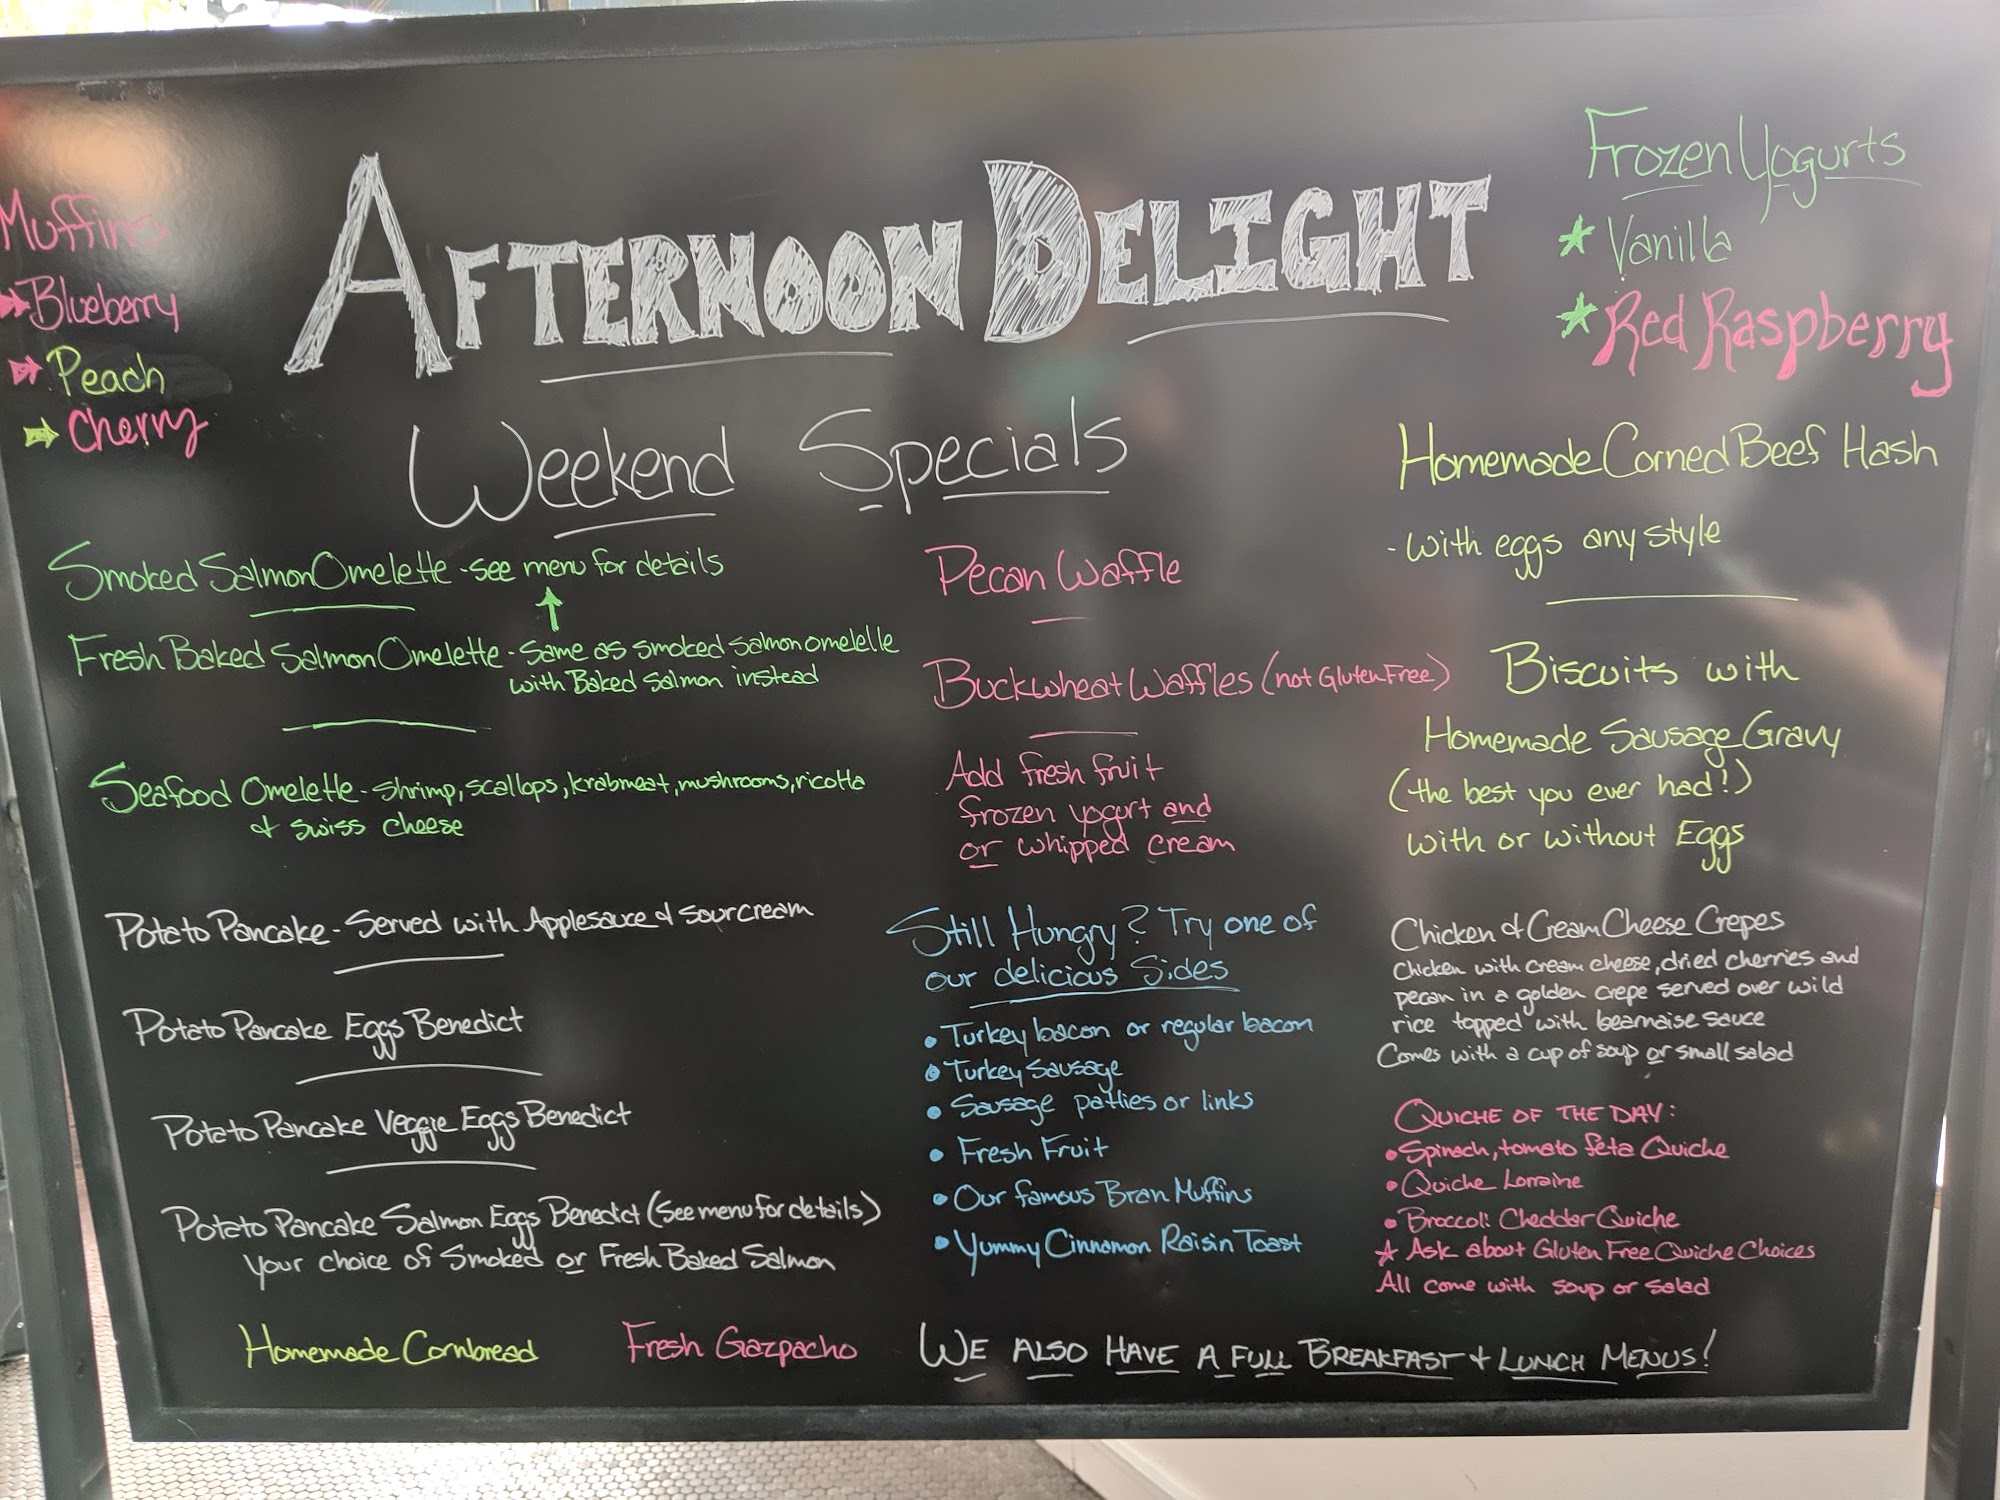 AFTERNOON DELIGHT
Weekend Specials
Muffins
Blueberry
Peach
Cherry
Frozen Yogurts
Vanilla
Red Raspberry
Smoked Salmon Omelette - see menu for details
Fresh Baked Salmon Omelette - Same as smoked salmon omelelle
with Baked Salmon instead
Seafood Omelette - shrimp, scallops, krabmeat, mushrooms, ricotta
& swiss cheese
Potato Pancake - Served with Applesauce & sour cream
Potato Pancake Eggs Benedict
Potato Pancake Veggie Eggs Benedict
Potato Pancake Salmon Eggs Benedict (See menu for details)
your choice of Smoked or Fresh Baked Salmon
Homemade Cornbread
Fresh Gazpacho
Pecan Waffle
Buckwheat Waffles (not Gluten Free)
Add fresh fruit
frozen yogurt and
or whipped cream
Still Hungry? Try one of
our delicious Sides
• Turkey bacon or regular bacon
• Turkey Sausage
• Sausage patties or links
• Fresh Fruit
• Our famous Bran Muffins
• Yummy Cinnamon Raisin Toast
Homemade Corned Beef Hash
- with eggs any style
Biscuits with
Homemade Sausage Gravy
(the best you ever had!)
with or without Eggs
Chicken & Cream Cheese Crepes
Chicken with cream cheese, dried cherries and
pecan in a golden crepe served over wild
rice topped with bearnaise sauce
Comes with a cup of soup or small salad
QUICHE OF THE DAY:
• Spinach, tomato feta Quiche
• Quiche Lorraine
• Broccoli Cheddar Quiche
☆ Ask about Gluten Free Quiche Choices
All come with soup or salad
WE ALSO HAVE A FULL BREAKFAST & LUNCH MENUS!